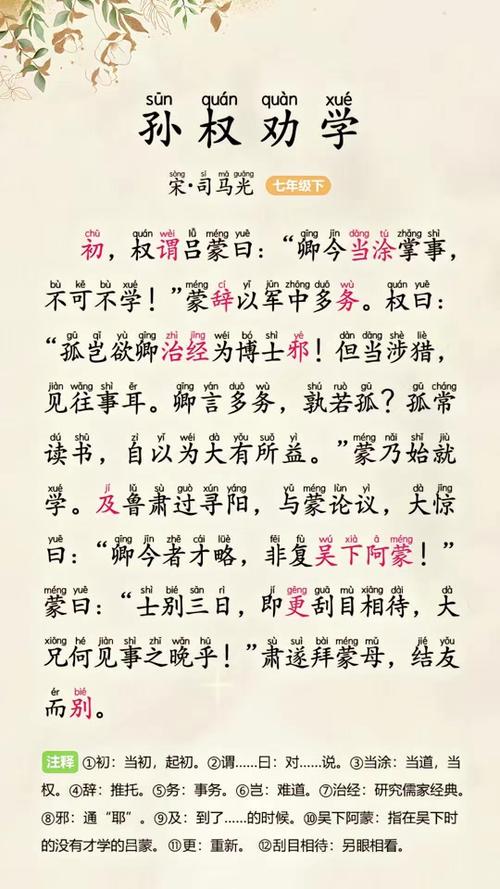 sūn quán quàn xué
孙权劝学
sòng sī mǎ guāng
宋·司马光 七年级下
chū quán wèi lǚ méng yuē qīng jīn dāng tú zhǎng shì
初，权谓吕蒙曰：“卿今当涂掌事，
bù kě bù xué méng cí yǐ jūn zhōng duō wù quán yuē
不可不学！”蒙辞以军中多务。权曰：
gū qǐ yù qīng zhì jīng wéi bó shì yé dàn dāng shè liè
“孤岂欲卿治经为博士邪！但当涉猎，
jiàn wǎng shì ěr qīng yán duō wù shú ruò gū gū cháng
见往事耳。卿言多务，孰若孤？孤常
dú shū zì yǐ wéi dà yǒu suǒ yì méng nǎi shǐ jiù
读书，自以为大有所益。”蒙乃始就
xué jí lǔ sù guò xún yáng yǔ méng lùn yì dà jīng
学。及鲁肃过寻阳，与蒙论议，大惊
yuē qīng jīn zhě cái lüè fēi fù wú xià ā méng
曰：“卿今者才略，非复吴下阿蒙！”
méng yuē shì bié sān rì jí gēng guā mù xiāng dài dà
蒙曰：“士别三日，即更刮目相待，大
xiōng hé jiàn shì zhī wǎn hū sù suì bài méng mǔ jié yǒu
兄何见事之晚乎！”肃遂拜蒙母，结友
ér bié
而别。
注释 ①初：当初，起初。②谓……曰：对……说。③当涂：当道，当
权。④辞：推托。⑤务：事务。⑥岂：难道。⑦治经：研究儒家经典。
⑧邪：通“耶”。⑨及：到了……的时候。⑩吴下阿蒙：指在吴下时
的没有才学的吕蒙。⑪更：重新。 ⑫刮目相待：另眼相看。